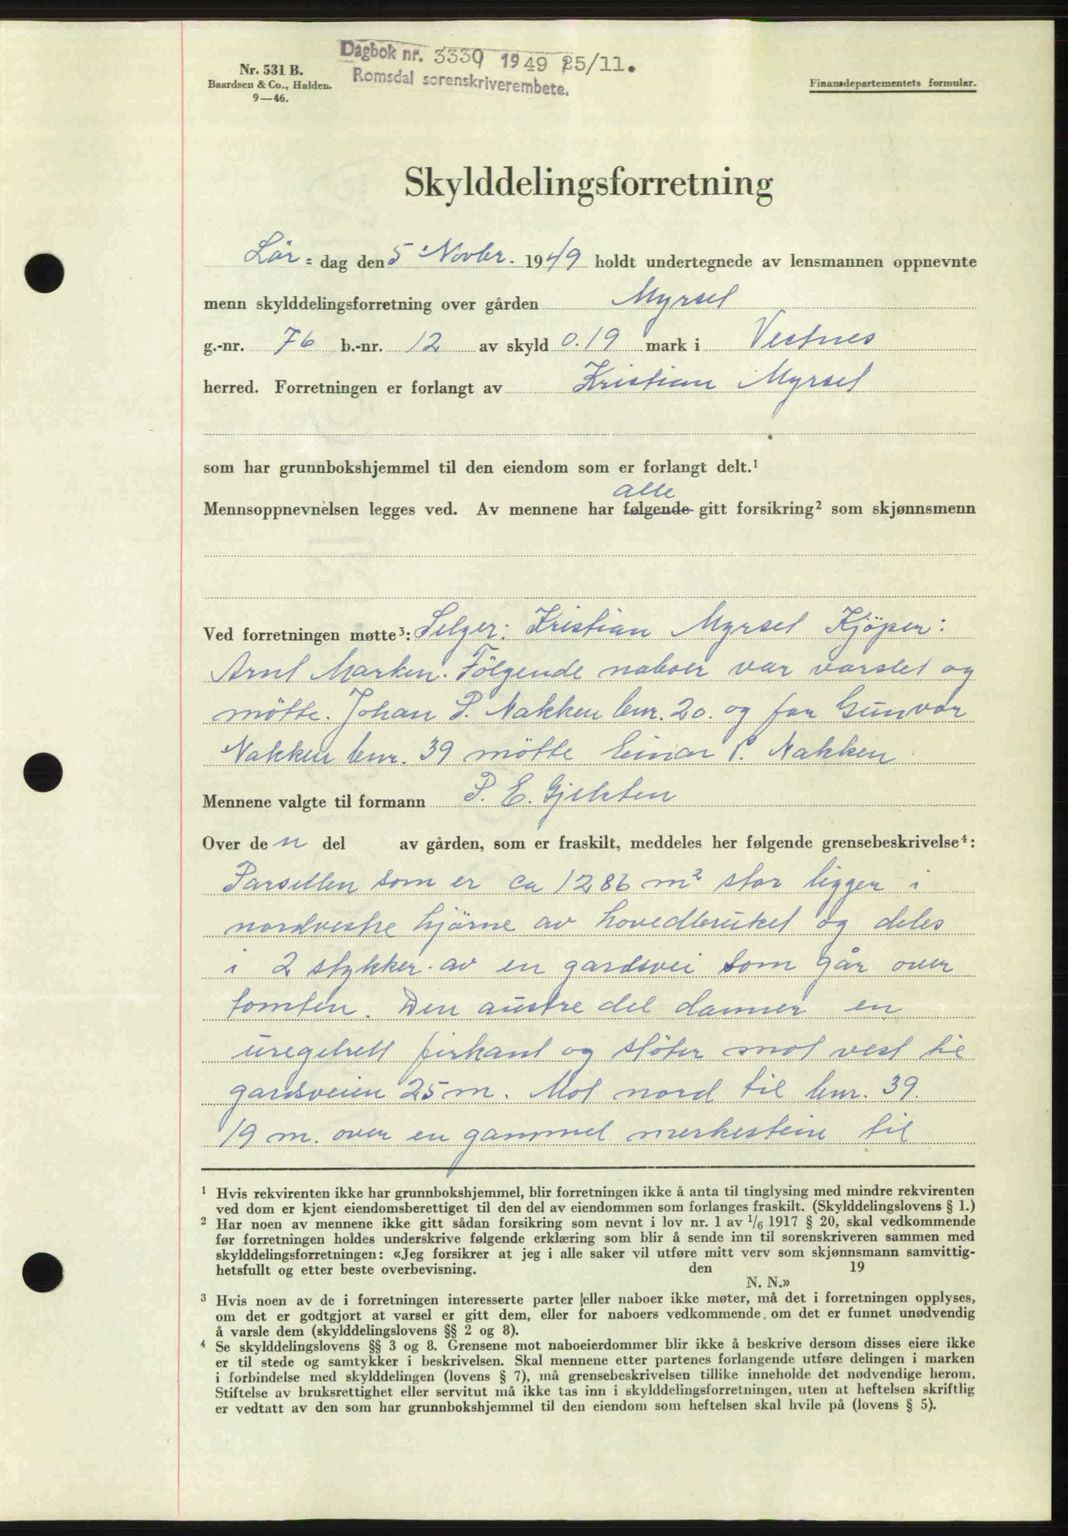 Dagbok nr. 3339 1949 25/11.
Romsdal sorenskriverembete.
Nr. 531 B.
Baardsen & Co., Halden.
9—46.
Finansdepartementets formular.
Skylddelingsforretning
Lör- dag den 5 Novbr. 1949 holdt undertegnede av lensmannen oppnevnte
menn skylddelingsforretning over gården Myrsel
g.-nr. 76 b.-nr. 12 av skyld 0.19 mark i Vestnes
herred. Forretningen er forlangt av Kristian Myrsel
som har grunnbokshjemmel til den eiendom som er forlangt delt.¹
alle
Mennsoppnevnelsen legges ved. Av mennene har følgende gitt forsikring² som skjønnsmenn
Ved forretningen møtte³: Selger: Kristian Myrsel Kjöper:
Arnt Marken. Fölgende naboer var varslet og
mötte. Johan P. Nakken bnr. 20. og for Gunvor
Nakken bnr. 39 mötte Einar P. Nakken
Mennene valgte til formann P. E. Gjelsten
Over de n del av gården, som er fraskilt, meddeles her følgende grensebeskrivelse⁴:
Parsellen som er ca 1286 m² stor ligger i
nordvestre hjörne av hovedbruket og deles
i 2 stykker av en gardsvei som går over
tomten. Den austre del danner en
uregelrett firkant og stöter mot vest til
gardsveien 25 m. Mot nord til bnr. 39.
19 m. over en gammel merkestein til
¹ Hvis rekvirenten ikke har grunnbokshjemmel, blir forretningen ikke å anta til tinglysing med mindre rekvirenten
ved dom er kjent eiendomsberettiget til den del av eiendommen som forlanges fraskilt. (Skylddelingslovens § 1.)
² Har noen av mennene ikke gitt sådan forsikring som nevnt i lov nr. 1 av ¹/₆ 1917 § 20, skal vedkommende
før forretningen holdes underskrive følgende erklæring som blir å sende inn til sorenskriveren sammen med
skylddelingsforretningen: «Jeg forsikrer at jeg i alle saker vil utføre mitt verv som skjønnsmann samvittig-
hetsfullt og etter beste overbevisning. den 19
N. N.»
³ Hvis noen av de i forretningen interesserte parter eller naboer ikke møter, må det i forretningen opplyses,
om det er godtgjort at varsel er gitt dem, eller for naboers vedkommende, om det er funnet unødvendig
å varsle dem (skylddelingslovens §§ 2 og 8).
⁴ Se skylddelingslovens §§ 3 og 8. Grensene mot naboeierdommer blir ikke å beskrive dersom disses eiere ikke
er til stede og samtykker i beskrivelsen. Skal mennene etter partenes forlangende utføre delingen i marken
i forbindelse med skylddelingen (lovens § 7), må grensebeskrivelsen tillike inneholde det nødvendige herom.
Stiftelse av bruksrettighet eller servitut må ikke tas inn i skylddelingsforretningen, uten at heftelsen skriftlig
er vedtatt av den som har grunnbokshjemmel til den eiendom som heftelsen skal hvile på (lovens § 5).